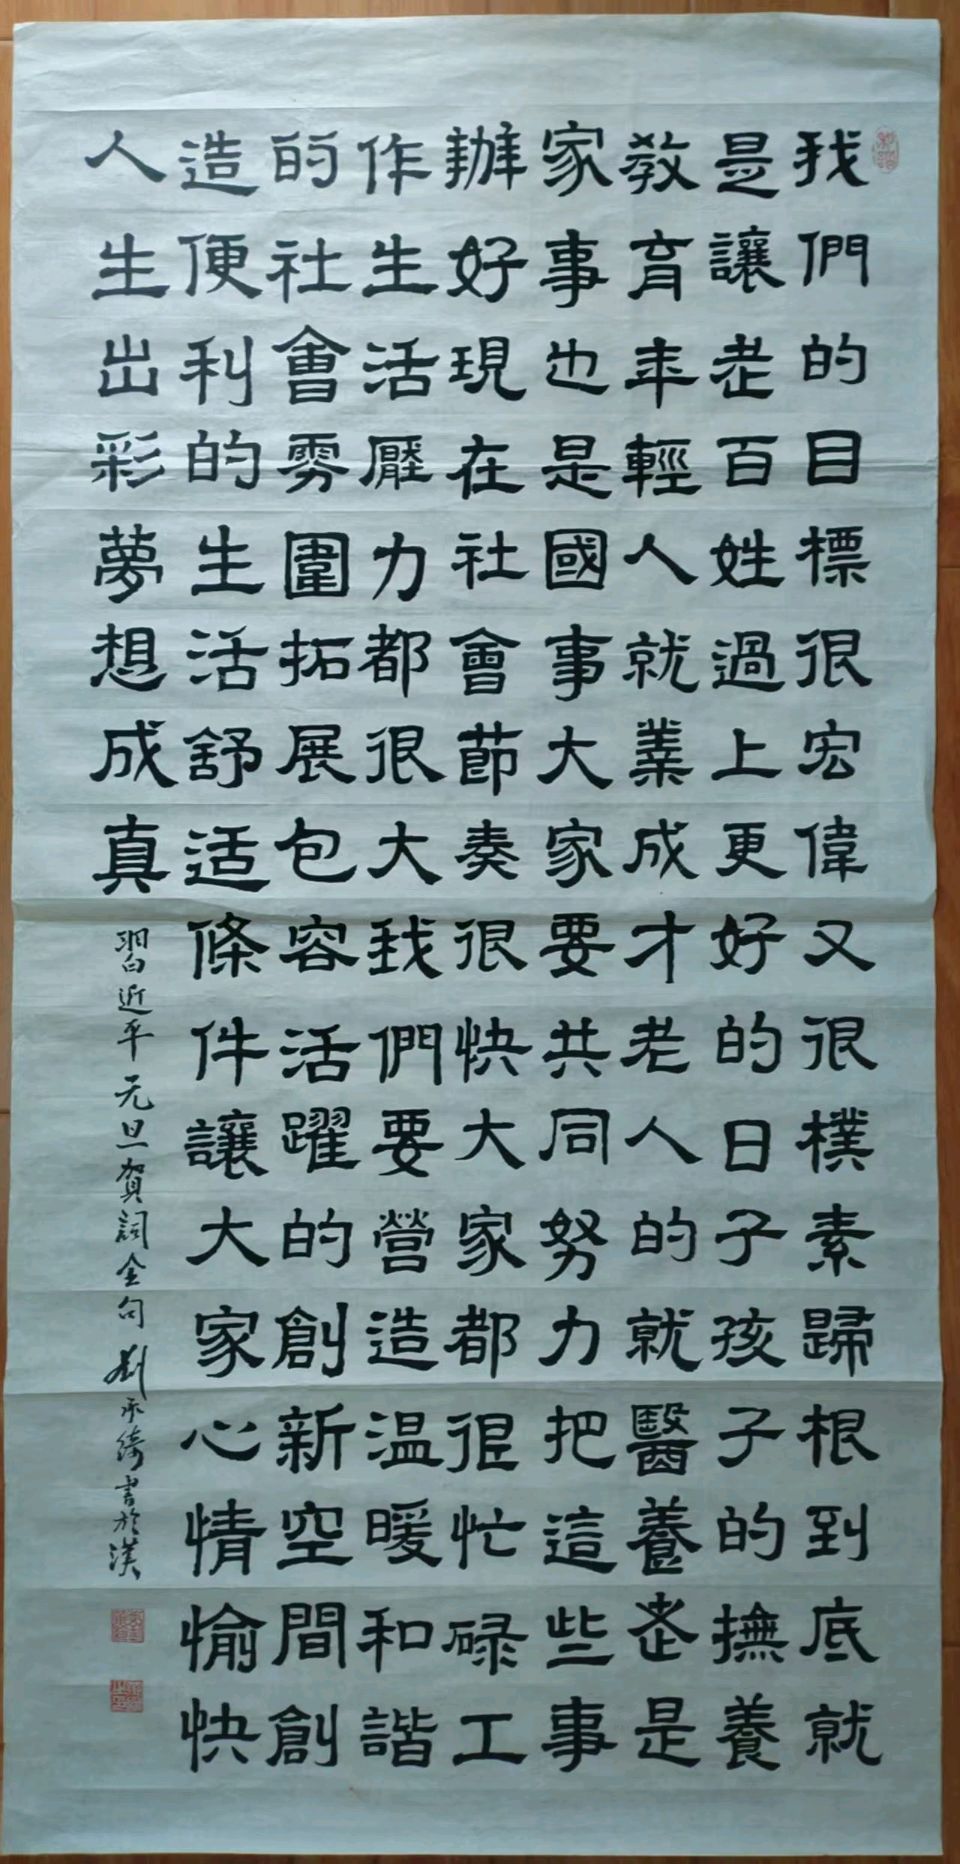 我們的目標很宏偉又很樸素歸根到底就
是讓老百姓過上更好的日子孩子的撫養
教育年輕人就業成才老人的就醫養老是
家事也是國事大家要共同努力把這些事
辦好現在社會節奏很快大家都很忙碌工
作生活壓力都很大我們要營造温暖和諧
的社會雰圍拓展包容活躍的創新空間創
造便利的生活舒适條件讓大家心情愉快
人生出彩夢想成真
習近平元旦賀詞金句 劉承綺書於漢